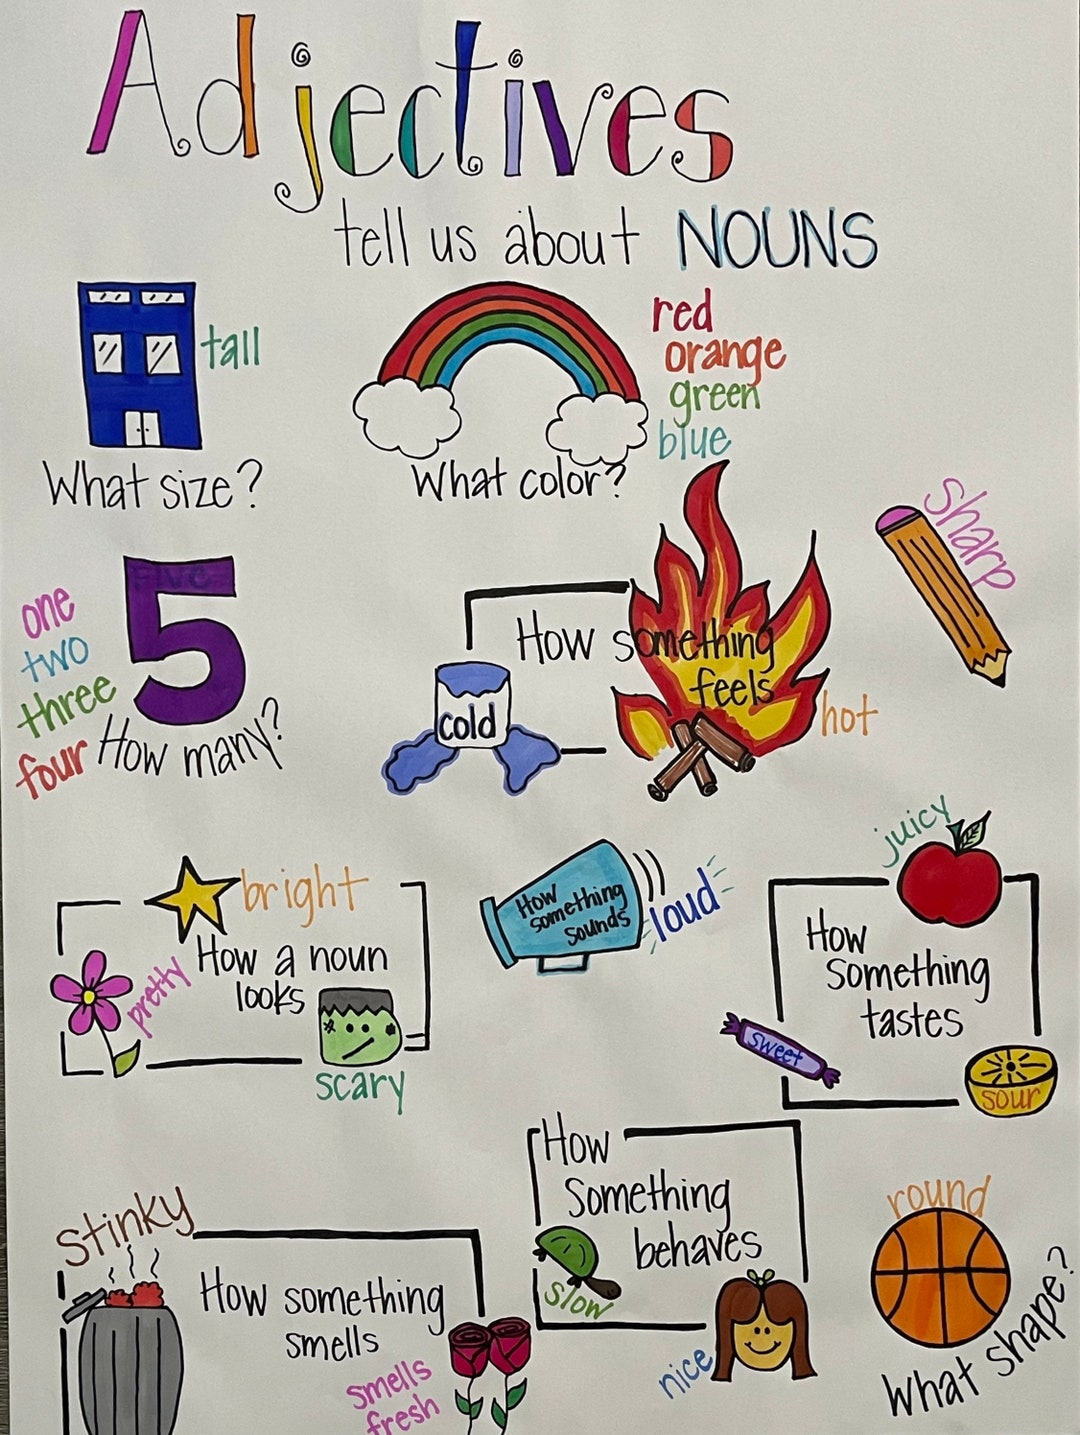 Adjectives
tell us about NOUNS
tall
What size?
red
orange
green
blue
What color?
sharp
one
two
three
four
FIVE
How many?
How something
feels
cold
hot
bright
How a noun
looks
pretty
scary
How
something
sounds
loud
juicy
How
something
tastes
sweet
sour
stinky
How something
smells
smells
fresh
How
Something
behaves
slow
nice
round
What shape?